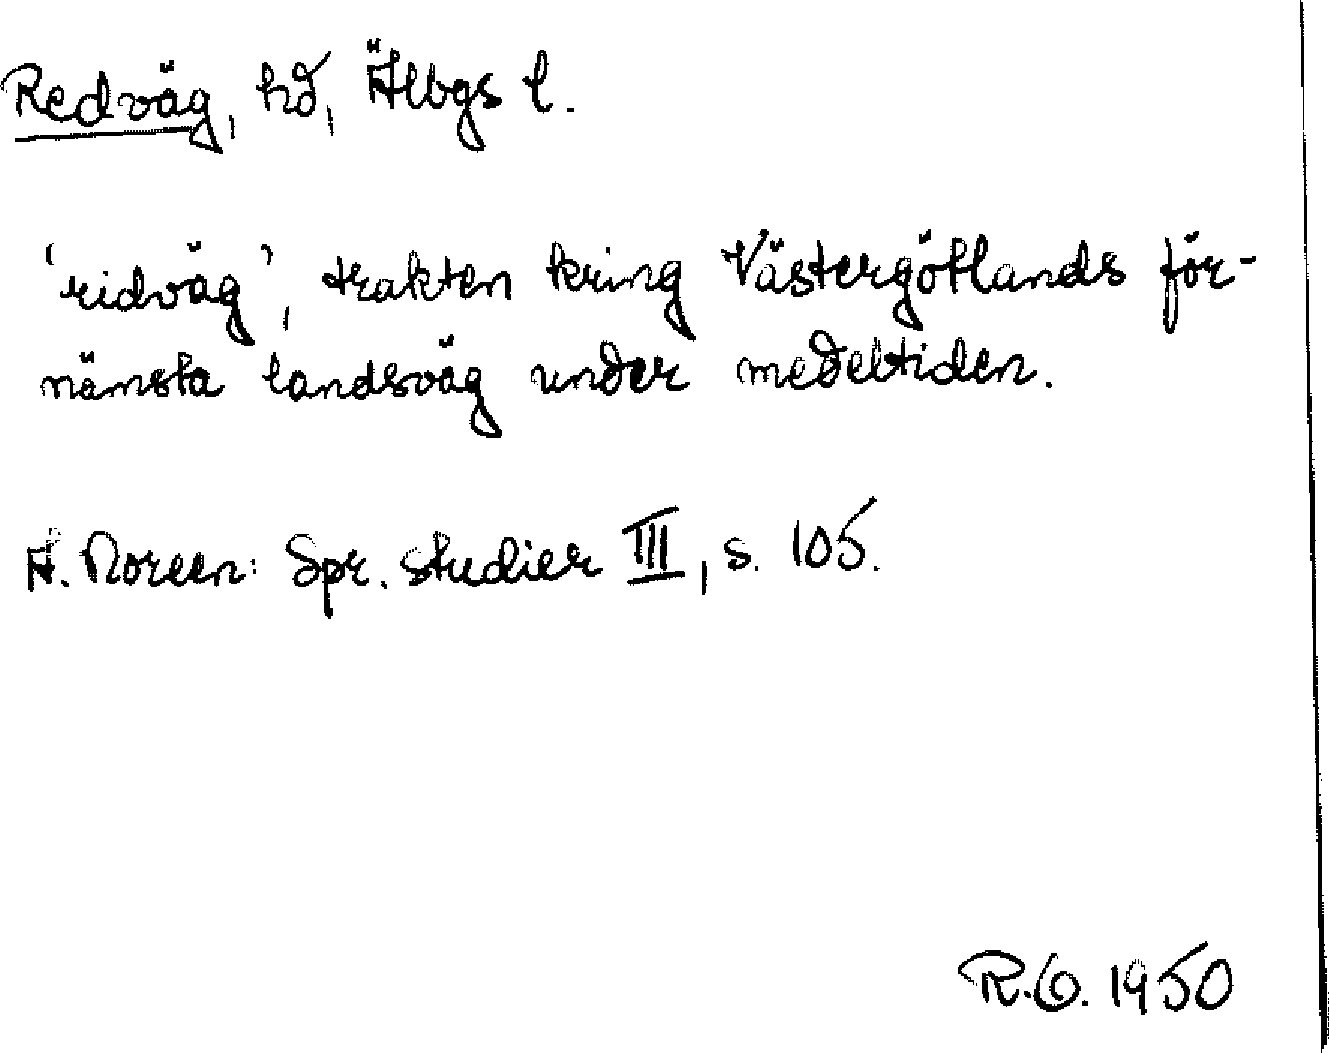 Redväg, hd, Älvbgs l.
'ridväg', trakten kring Västergötlands för-
nämsta landsväg under medeltiden.
A. Noreen: Spr. studier III, s. 105.
R.O. 1950